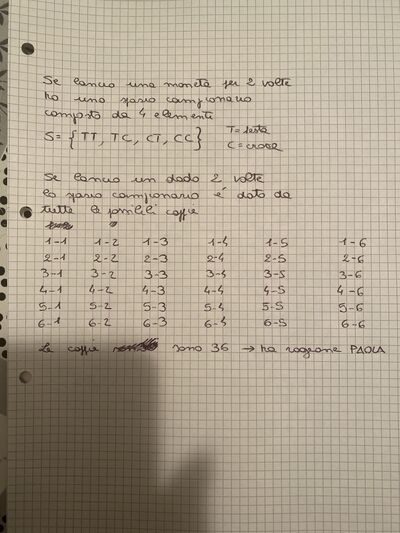 Se lancio una moneta per 2 volte
ho uno spazio campionario
composto da 4 elementi
S = { TT, TC, CT, CC } T = testa
C = croce
Se lancio un dado 2 volte
lo spazio campionario é dato da
tutte le possibili coppie
1-1 1-2 1-3 1-4 1-5 1-6
2-1 2-2 2-3 2-4 2-5 2-6
3-1 3-2 3-3 3-4 3-5 3-6
4-1 4-2 4-3 4-4 4-5 4-6
5-1 5-2 5-3 5-4 5-5 5-6
6-1 6-2 6-3 6-4 6-5 6-6
Le coppie sono 36 → ha ragione PAOLA